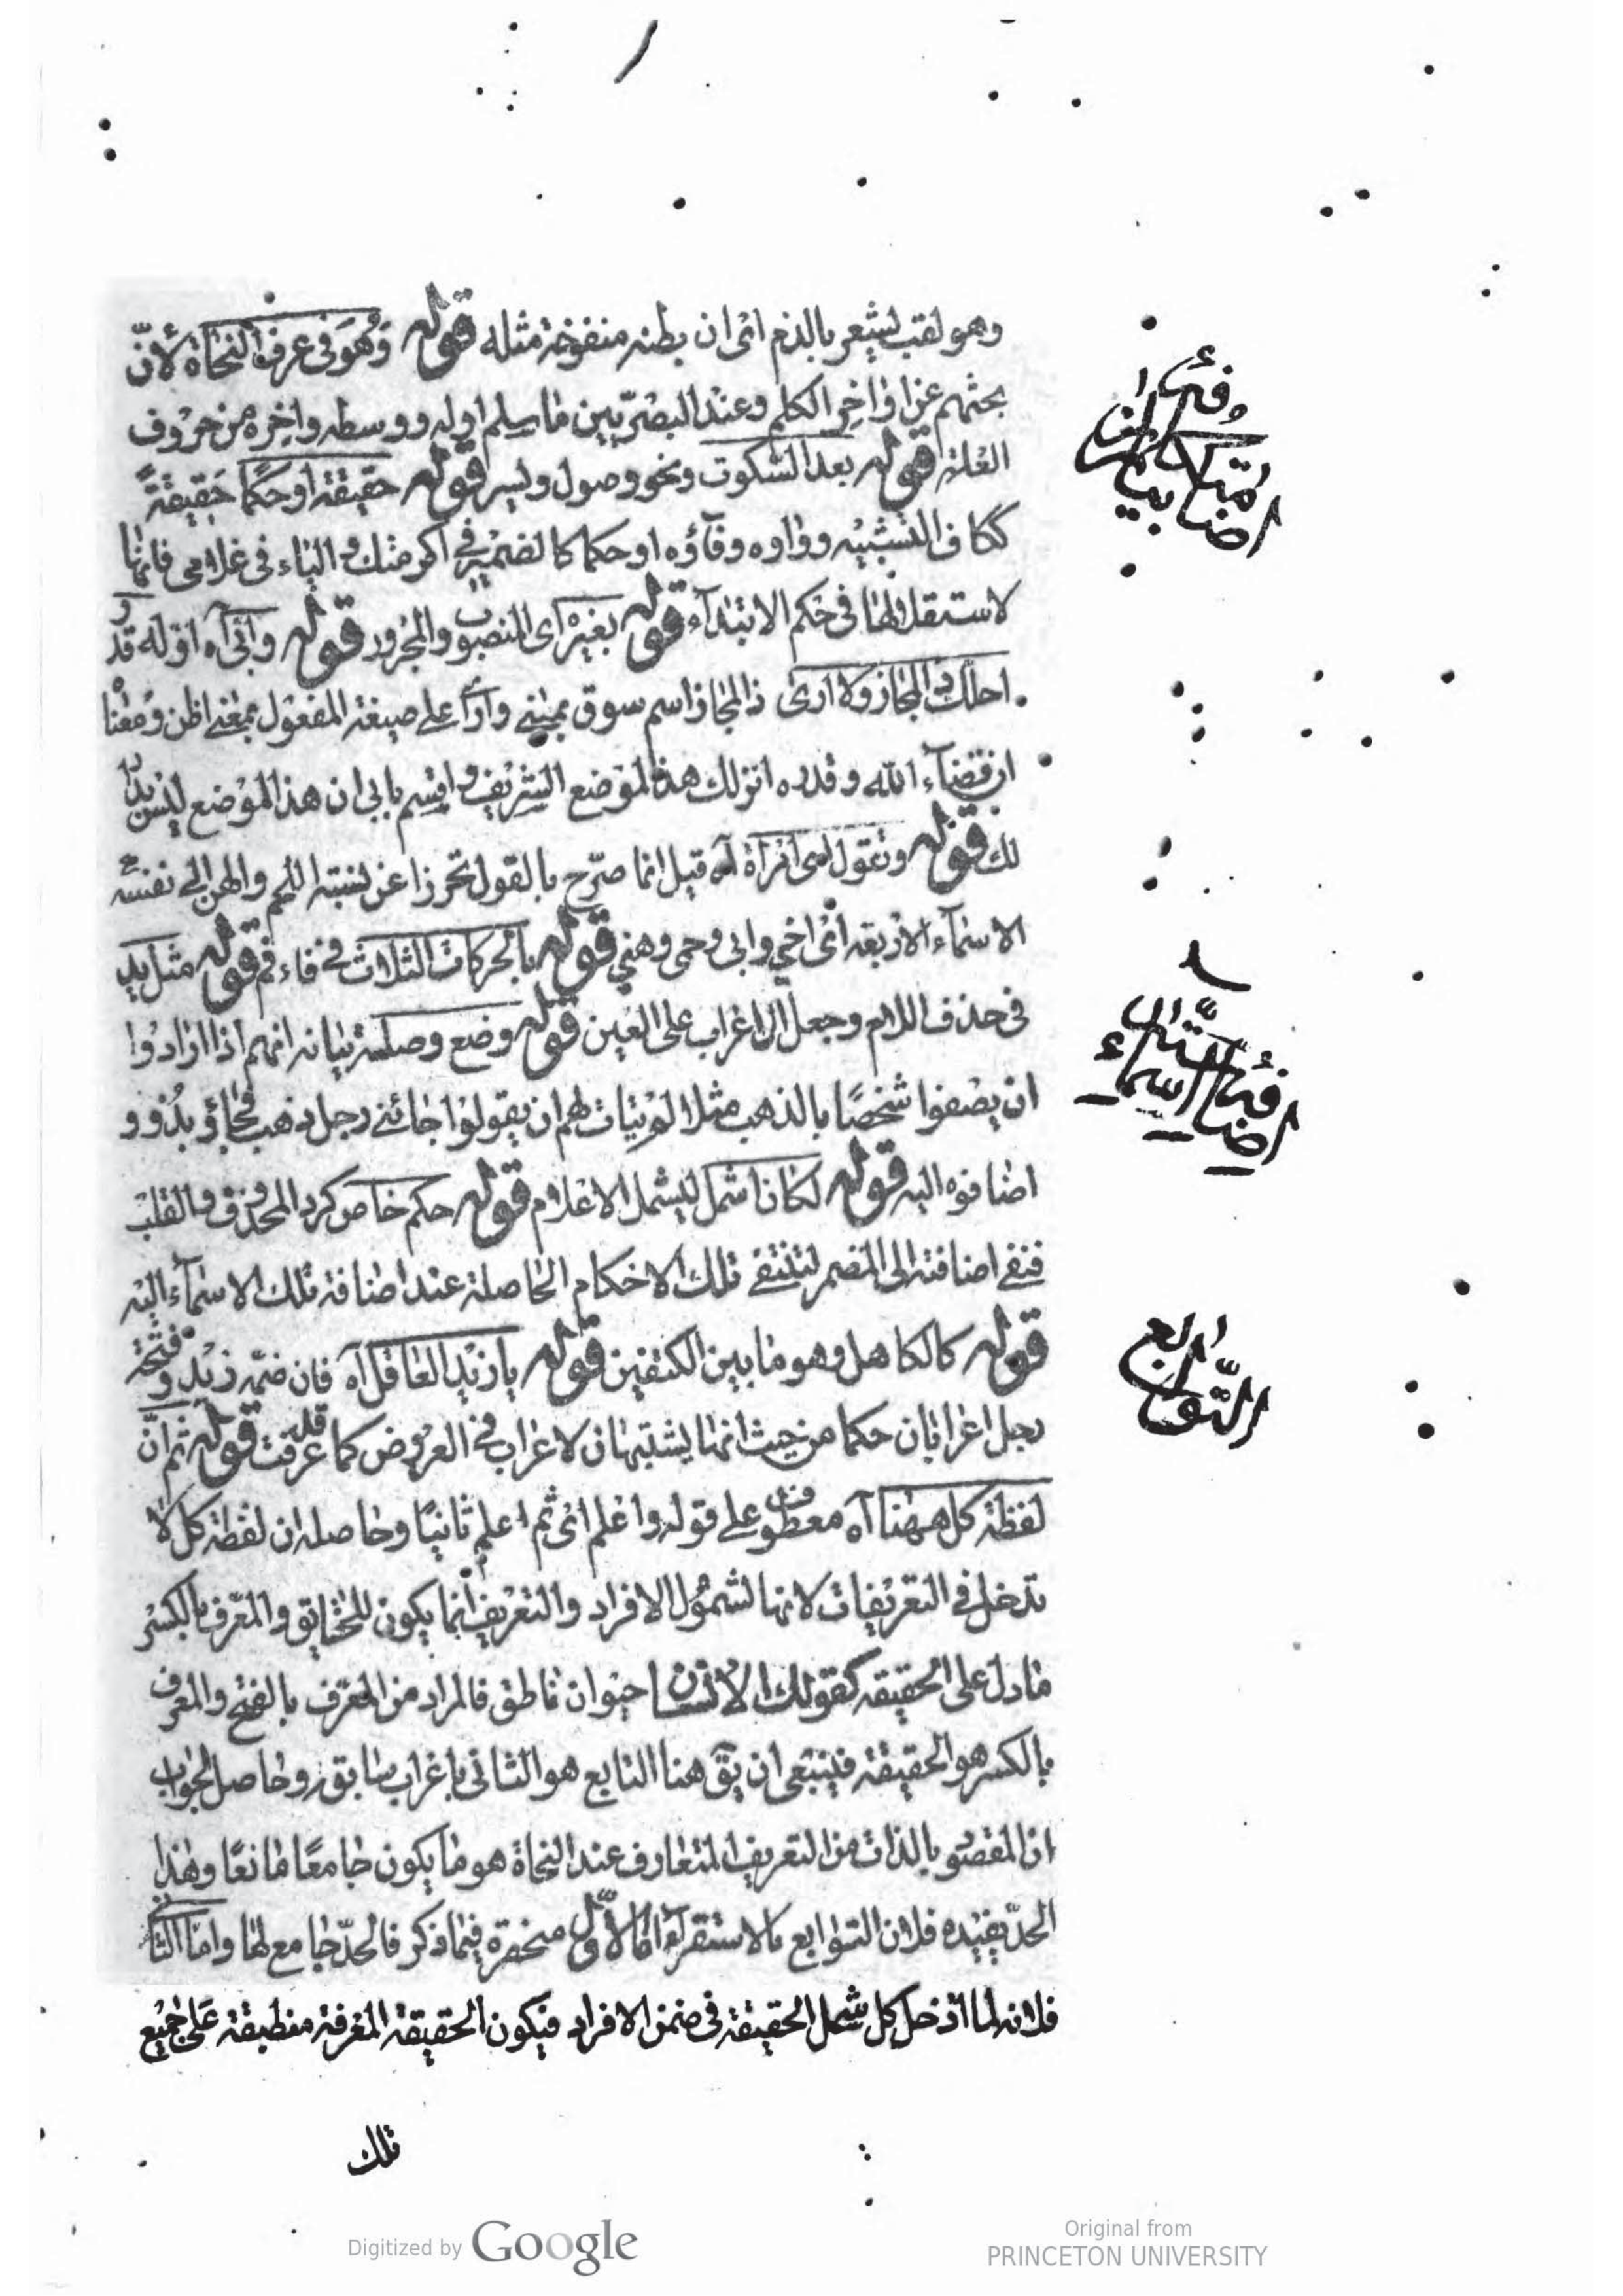 وهو لقب يشعر بالذم اى ان بطنه منفوخة مثله قوله وهو فى عرف النحاة لانّ
بحثهم عن اواخر الكلم وعند البصريّين ما سلم اوله ووسطه واخره من حروف
العلة قوله بعد السكون ونحو وصول وليس قوله حقيقة او حكمًا حقيقةً
ككاف التشبيه وواوه وفاؤه او حكما كالضمير فى اكرمتك والياء فى غلامى فانها
لاستقلالها فى حكم الابتداء قوله بغيره اى المنصوب والمجرور قوله وابىّ آه اوّله قدر
احلك ذا المجاز ولا ارى ذا المجاز اسم سوق بمنى وارى على صيغة المفعول بمعنى اظن ومعنا
ان قضاء الله وقدره انزلك هذا لموضع الشريف واقسم بابى ان هذا الموضع ليس بدا
لك قوله وتقول اى امراة آه قيل انما صرّح بالقول تحرزا عن نسبته اللحم والهن الى نفسه
الاسماء الاربعة اى اخى وابى وحمى وهنى قوله بالحركات الثلاث فى فاء فم قوله مثل يد
فى حذف اللام وجعل الاعراب على العين قوله وضع وصلة بيانه انهم اذا ارادوا
ان يصفوا شخصًا بالذهب مثلا لم يتات لهم ان يقولوا جائنى رجل ذهب فجاؤ بذو و
اضافوه اليه قوله لكان اشمل ليشمل الاعلام قوله حكم خاص كرد المحذوف والقلب
فنفى اضافته الى المضمر لتنتفى تلك الاحكام الحاصلة عند اضافة تلك الاسماء اليه
قوله كالكاهل وهو ما بين الكتفين قوله يا زيد العاقل آه فان ضمّه زيد وفتحة
رجل اعرابان حكما من حيث انهما يشتبهان لاعراب فى العروض كما عرفت قوله ثم انّ
لفظة كل ههنا آه معطوف على قوله واعلم اى ثم اعلم ثانيًا وحاصله ان لفظة كل لا
تدخل فى التعريفات لانها لشمول الافراد والتعريف انما يكون للحقايق والمعرّف بالكسر
ما دل على الحقيقة كقولك الانسان حيوان ناطق فالمراد من المعرّف بالفتح والمعرف
بالكسر هو الحقيقة فينبغى ان يقّ هنا التابع هو الثانى باعراب سابقه وحاصل الجواب
ان المقصود بالذات من التعريف المتعارف عند النحاة هو ما يكون جامعًا مانعًا وهذا
الحدّ يفيده فلان التوابع بالاستقراء اما الاوّل منحصرة فيما ذكر فالحدّ جامع لها واما الثانى
فلانه لما ادخل كل شمل الحقيقة فى ضمن الافراد فيكون الحقيقة المعرفة منطبقة على جميع
تلك
التّوابع
Digitized by Google
Original from
PRINCETON UNIVERSITY